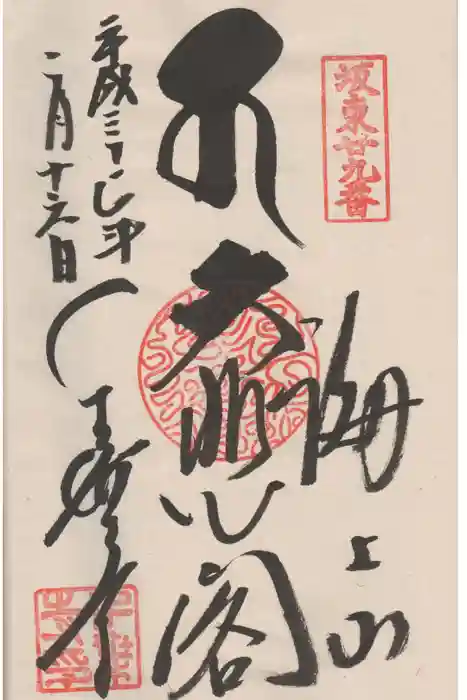 坂東廿九番
海上山
大悲閣
平成三十一年
二月十六日
千葉寺